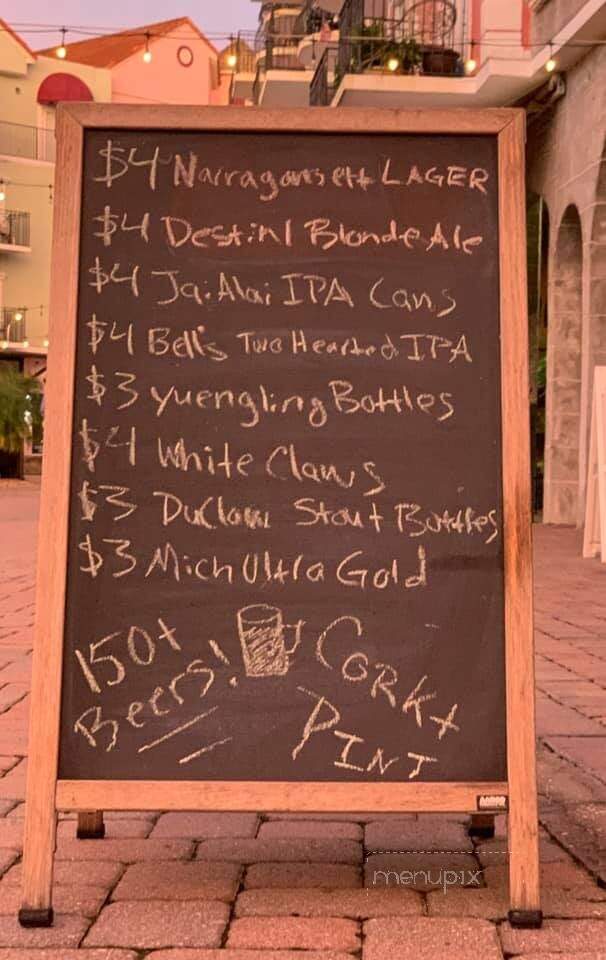 $4 Narragansett LAGER
$4 Destinl Blonde Ale
$4 Jai Alai IPA Cans
$4 Bell's Two Hearted IPA
$3 yuengling Bottles
$4 White Claws
$3 DuClaw Stout Bottles
$3 Mich Ultra Gold
150+
Beers!
CORK+
PINT
menupix